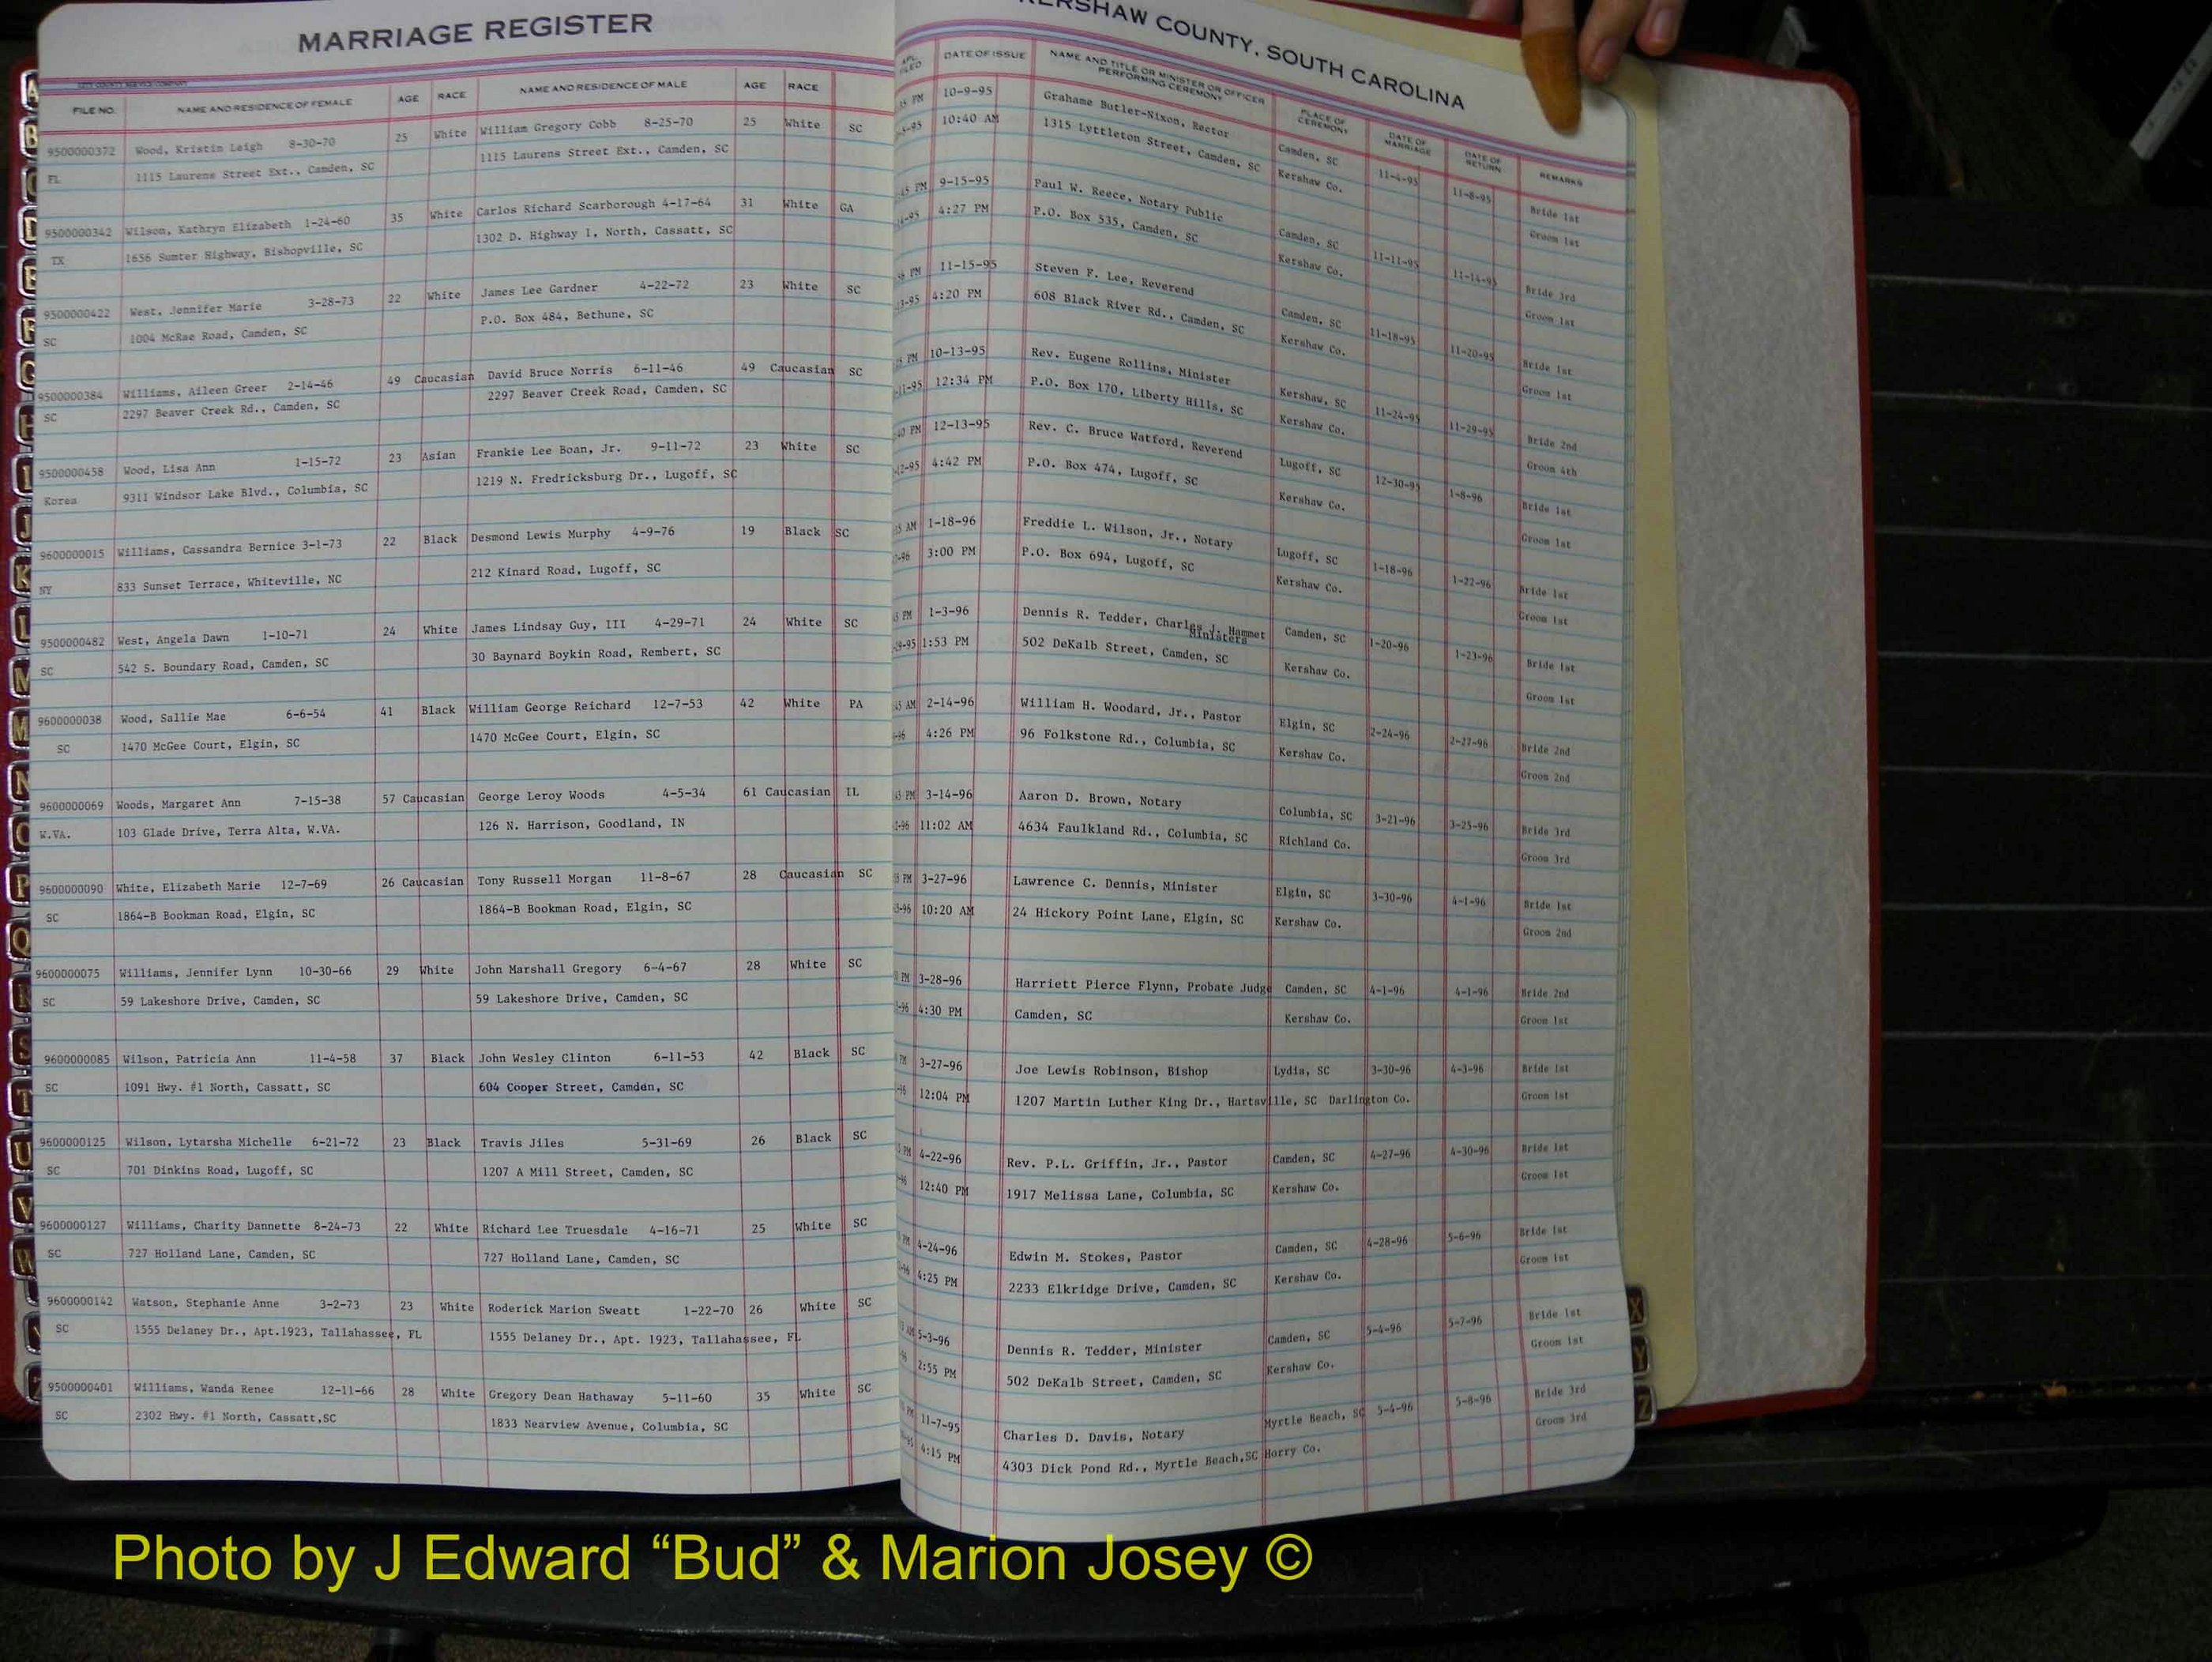 MARRIAGE REGISTER
KERSHAW COUNTY, SOUTH CAROLINA
FILE NO. NAME AND RESIDENCE OF FEMALE AGE RACE NAME AND RESIDENCE OF MALE AGE RACE
APL. FILED DATE OF ISSUE NAME AND TITLE OR MINISTER OR OFFICER PERFORMING CEREMONY PLACE OF CEREMONY DATE OF MARRIAGE DATE OF RETURN REMARKS
9500000372 Wood, Kristin Leigh 8-30-70 25 White William Gregory Cobb 8-25-70 25 White SC PM 10-9-95 Grahame Butler-Nixon, Rector Camden, SC 11-4-95 11-8-95 Bride 1st
FL 1115 Laurens Street Ext., Camden, SC 1115 Laurens Street Ext., Camden, SC 10:40 AM 1315 Lyttleton Street, Camden, SC Kershaw Co. Groom 1st
9500000342 Wilson, Kathryn Elizabeth 1-24-60 35 White Carlos Richard Scarborough 4-17-64 31 White GA PM 9-15-95 Paul W. Reece, Notary Public Camden, SC 11-11-95 11-14-95 Bride 3rd
TX 1656 Sumter Highway, Bishopville, SC 1302 D. Highway 1, North, Cassatt, SC 4:27 PM P.O. Box 535, Camden, SC Kershaw Co. Groom 1st
9500000422 West, Jennifer Marie 3-28-73 22 White James Lee Gardner 4-22-72 23 White SC PM 11-15-95 Steven F. Lee, Reverend Camden, SC 11-18-95 11-20-95 Bride 1st
SC 1004 McRae Road, Camden, SC P.O. Box 484, Bethune, SC 4:20 PM 608 Black River Rd., Camden, SC Kershaw Co. Groom 1st
9500000384 Williams, Aileen Greer 2-14-46 49 Caucasian David Bruce Norris 6-11-46 49 Caucasian SC PM 10-13-95 Rev. Eugene Rollins, Minister Kershaw, SC 11-24-95 11-29-95 Bride 2nd
SC 2297 Beaver Creek Rd., Camden, SC 2297 Beaver Creek Road, Camden, SC 12:34 PM P.O. Box 170, Liberty Hills, SC Kershaw Co. Groom 4th
9500000458 Wood, Lisa Ann 1-15-72 23 Asian Frankie Lee Boan, Jr. 9-11-72 23 White SC PM 12-13-95 Rev. C. Bruce Watford, Reverend Lugoff, SC 12-30-95 1-8-96 Bride 1st
Korea 9311 Windsor Lake Blvd., Columbia, SC 1219 N. Fredricksburg Dr., Lugoff, SC 4:42 PM P.O. Box 474, Lugoff, SC Kershaw Co. Groom 1st
9600000015 Williams, Cassandra Bernice 3-1-73 22 Black Desmond Lewis Murphy 4-9-76 19 Black SC AM 1-18-96 Freddie L. Wilson, Jr., Notary Lugoff, SC 1-18-96 1-22-96 Bride 1st
NY 833 Sunset Terrace, Whiteville, NC 212 Kinard Road, Lugoff, SC 3:00 PM P.O. Box 694, Lugoff, SC Kershaw Co. Groom 1st
9500000482 West, Angela Dawn 1-10-71 24 White James Lindsay Guy, III 4-29-71 24 White SC PM 1-3-96 Dennis R. Tedder, Charles J. Hammet Ministers Camden, SC 1-20-96 1-23-96 Bride 1st
SC 542 S. Boundary Road, Camden, SC 30 Baynard Boykin Road, Rembert, SC 1:53 PM 502 DeKalb Street, Camden, SC Kershaw Co. Groom 1st
9600000038 Wood, Sallie Mae 6-6-54 41 Black William George Reichard 12-7-53 42 White PA AM 2-14-96 William H. Woodard, Jr., Pastor Elgin, SC 2-24-96 2-27-96 Bride 2nd
SC 1470 McGee Court, Elgin, SC 1470 McGee Court, Elgin, SC 4:26 PM 96 Folkstone Rd., Columbia, SC Kershaw Co. Groom 2nd
9600000069 Woods, Margaret Ann 7-15-38 57 Caucasian George Leroy Woods 4-5-34 61 Caucasian IL PM 3-14-96 Aaron D. Brown, Notary Columbia, SC 3-21-96 3-25-96 Bride 3rd
W.VA. 103 Glade Drive, Terra Alta, W.VA. 126 N. Harrison, Goodland, IN 11:02 AM 4634 Faulkland Rd., Columbia, SC Richland Co. Groom 3rd
9600000090 White, Elizabeth Marie 12-7-69 26 Caucasian Tony Russell Morgan 11-8-67 28 Caucasian SC PM 3-27-96 Lawrence C. Dennis, Minister Elgin, SC 3-30-96 4-1-96 Bride 1st
SC 1864-B Bookman Road, Elgin, SC 1864-B Bookman Road, Elgin, SC 10:20 AM 24 Hickory Point Lane, Elgin, SC Kershaw Co. Groom 2nd
9600000075 Williams, Jennifer Lynn 10-30-66 29 White John Marshall Gregory 6-4-67 28 White SC PM 3-28-96 Harriett Pierce Flynn, Probate Judge Camden, SC 4-1-96 4-1-96 Bride 2nd
SC 59 Lakeshore Drive, Camden, SC 59 Lakeshore Drive, Camden, SC 4:30 PM Camden, SC Kershaw Co. Groom 1st
9600000085 Wilson, Patricia Ann 11-4-58 37 Black John Wesley Clinton 6-11-53 42 Black SC PM 3-27-96 Joe Lewis Robinson, Bishop Lydia, SC 3-30-96 4-3-96 Bride 1st
SC 1091 Hwy. #1 North, Cassatt, SC 604 Cooper Street, Camden, SC 12:04 PM 1207 Martin Luther King Dr., Hartsville, SC Darlington Co. Groom 1st
9600000125 Wilson, Lytarsha Michelle 6-21-72 23 Black Travis Jiles 5-31-69 26 Black SC PM 4-22-96 Rev. P.L. Griffin, Jr., Pastor Camden, SC 4-27-96 4-30-96 Bride 1st
SC 701 Dinkins Road, Lugoff, SC 1207 A Mill Street, Camden, SC 12:40 PM 1917 Melissa Lane, Columbia, SC Kershaw Co. Groom 1st
9600000127 Williams, Charity Dannette 8-24-73 22 White Richard Lee Truesdale 4-16-71 25 White SC PM 4-24-96 Edwin M. Stokes, Pastor Camden, SC 4-28-96 5-6-96 Bride 1st
SC 727 Holland Lane, Camden, SC 727 Holland Lane, Camden, SC 4:25 PM 2233 Elkridge Drive, Camden, SC Kershaw Co. Groom 1st
9600000142 Watson, Stephanie Anne 3-2-73 23 White Roderick Marion Sweatt 1-22-70 26 White SC 5-3-96 Dennis R. Tedder, Minister Camden, SC 5-4-96 5-7-96 Bride 1st
SC 1555 Delaney Dr., Apt.1923, Tallahassee, FL 1555 Delaney Dr., Apt. 1923, Tallahassee, FL 2:55 PM 502 DeKalb Street, Camden, SC Kershaw Co. Groom 1st
9500000401 Williams, Wanda Renee 12-11-66 28 White Gregory Dean Hathaway 5-11-60 35 White SC PM 11-7-95 Charles D. Davis, Notary Myrtle Beach, SC 5-4-96 5-8-96 Bride 3rd
SC 2302 Hwy. #1 North, Cassatt,SC 1833 Nearview Avenue, Columbia, SC 4:15 PM 4303 Dick Pond Rd., Myrtle Beach,SC Horry Co. Groom 3rd
X
Y
Z
Photo by J Edward “Bud” & Marion Josey ©